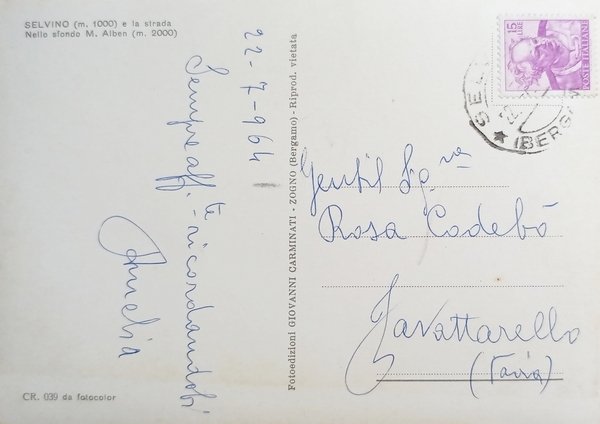 SELVINO (m. 1000) e la strada
Nello sfondo M. Alben (m. 2000)
22-7-964
Sempre aff.te ricordandobi
Amelia
CR. 039 da fotocolor
Fotoedizioni GIOVANNI CARMINATI - ZOGNO (Bergamo) - Riprod. vietata
15 LIRE
POSTE ITALIANE
(BERGAM
Gentil Sg.ra
Rosa Codebò
Zavattarello
(Pavia)